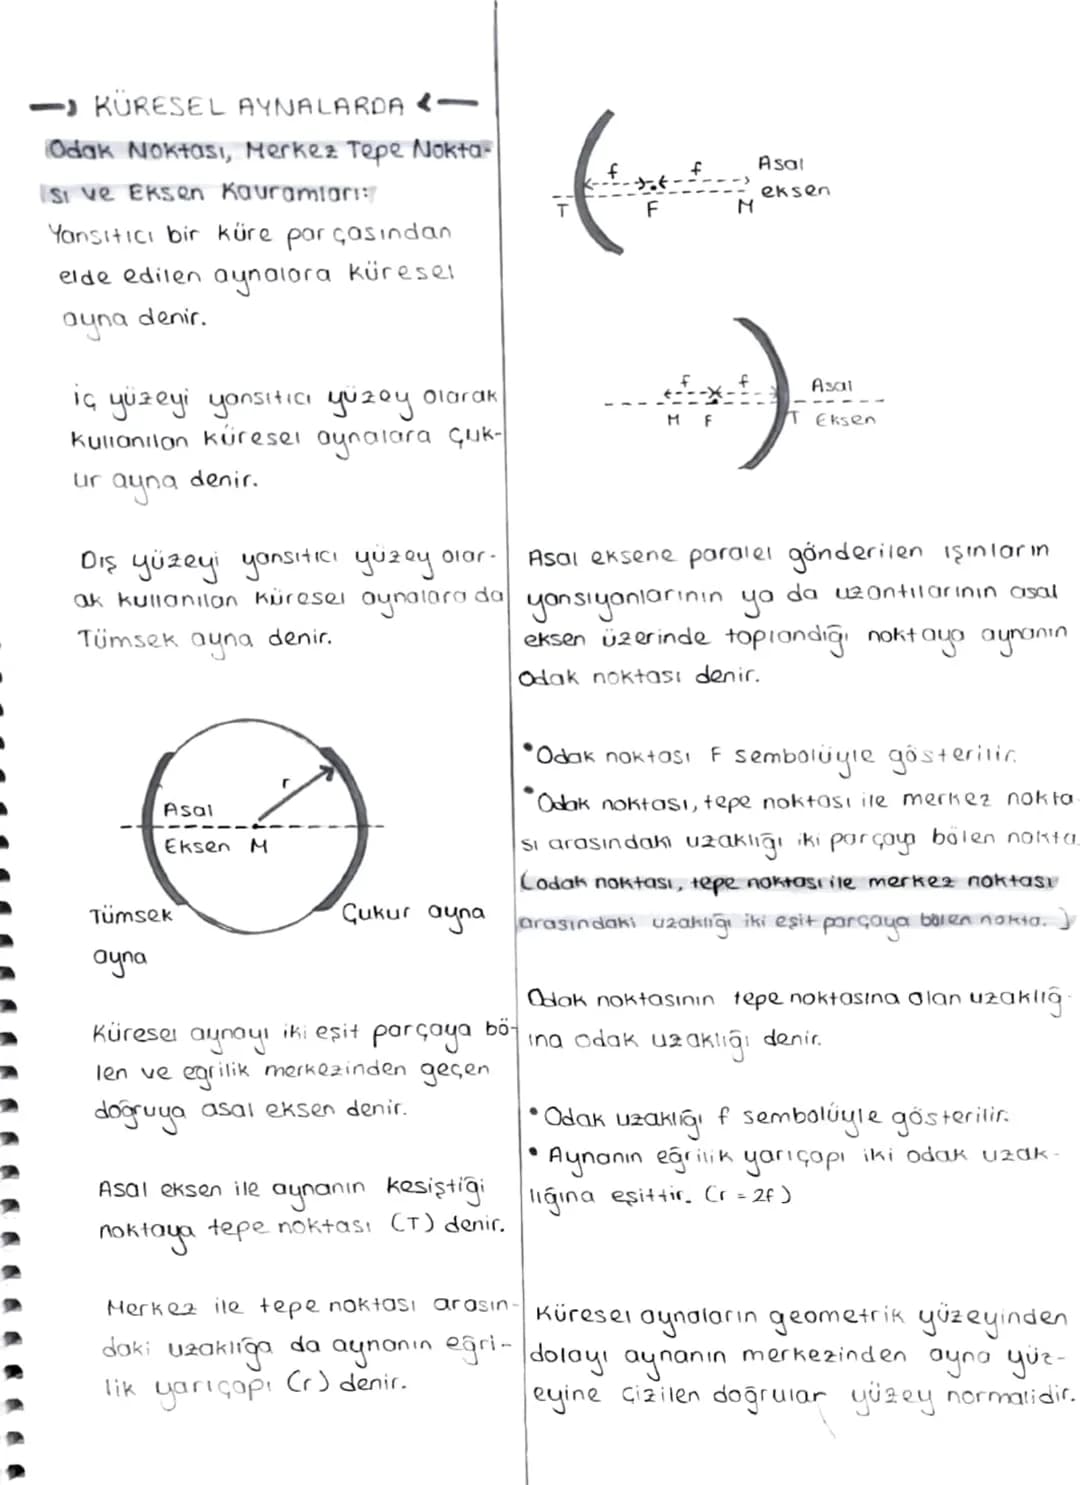 KÜRESEL AYNALARDA
Odak Noktası, Merkez Tepe Nokta-
sı ve Eksen Kavramları:
Yansıtıcı bir küre parçasından
elde edilen aynalara küresel
ayna denir.
iç yüzeyi yansıtıcı yüzey olarak
kullanılan küresel aynalara çuk-
ur ayna denir.
Dış yüzeyi yansıtıcı yüzey olar-
ak kullanılan küresel aynalara da
Tümsek ayna denir.
r
Asal
Eksen M
Tümsek
ayna
Çukur ayna
Küresel aynayı iki eşit parçaya bö-
len ve eğrilik merkezinden geçen
doğruya asal eksen denir.
Asal eksen ile aynanın kesiştiği
noktaya tepe noktası (T) denir.
Merkez ile tepe noktası arasın-
daki uzaklığa da aynanın eğri-
lik yarıçapı (r) denir.
f f Asal
eksen
T F M
f f Asal
M F T Eksen
Asal eksene paralel gönderilen ışınların
yansıyanlarının ya da uzantılarının asal
eksen üzerinde toplandığı noktaya aynanın
odak noktası denir.
• Odak noktası F sembolüyle gösterilir.
• Odak noktası, tepe noktası ile merkez nokta
sı arasındaki uzaklığı iki parçaya bölen nokta
(odak noktası, tepe noktası ile merkez noktası
arasındaki uzaklığı iki eşit parçaya bölen nokta.)
Odak noktasının tepe noktasına olan uzaklığ-
ına odak uzaklığı denir.
• Odak uzaklığı f sembolüyle gösterilir.
• Aynanın eğrilik yarıçapı iki odak uzak-
lığına eşittir. (r = 2f)
Küresel aynaların geometrik yüzeyinden
dolayı aynanın merkezinden ayna yüz-
eyine çizilen doğrular yüzey normalidir.